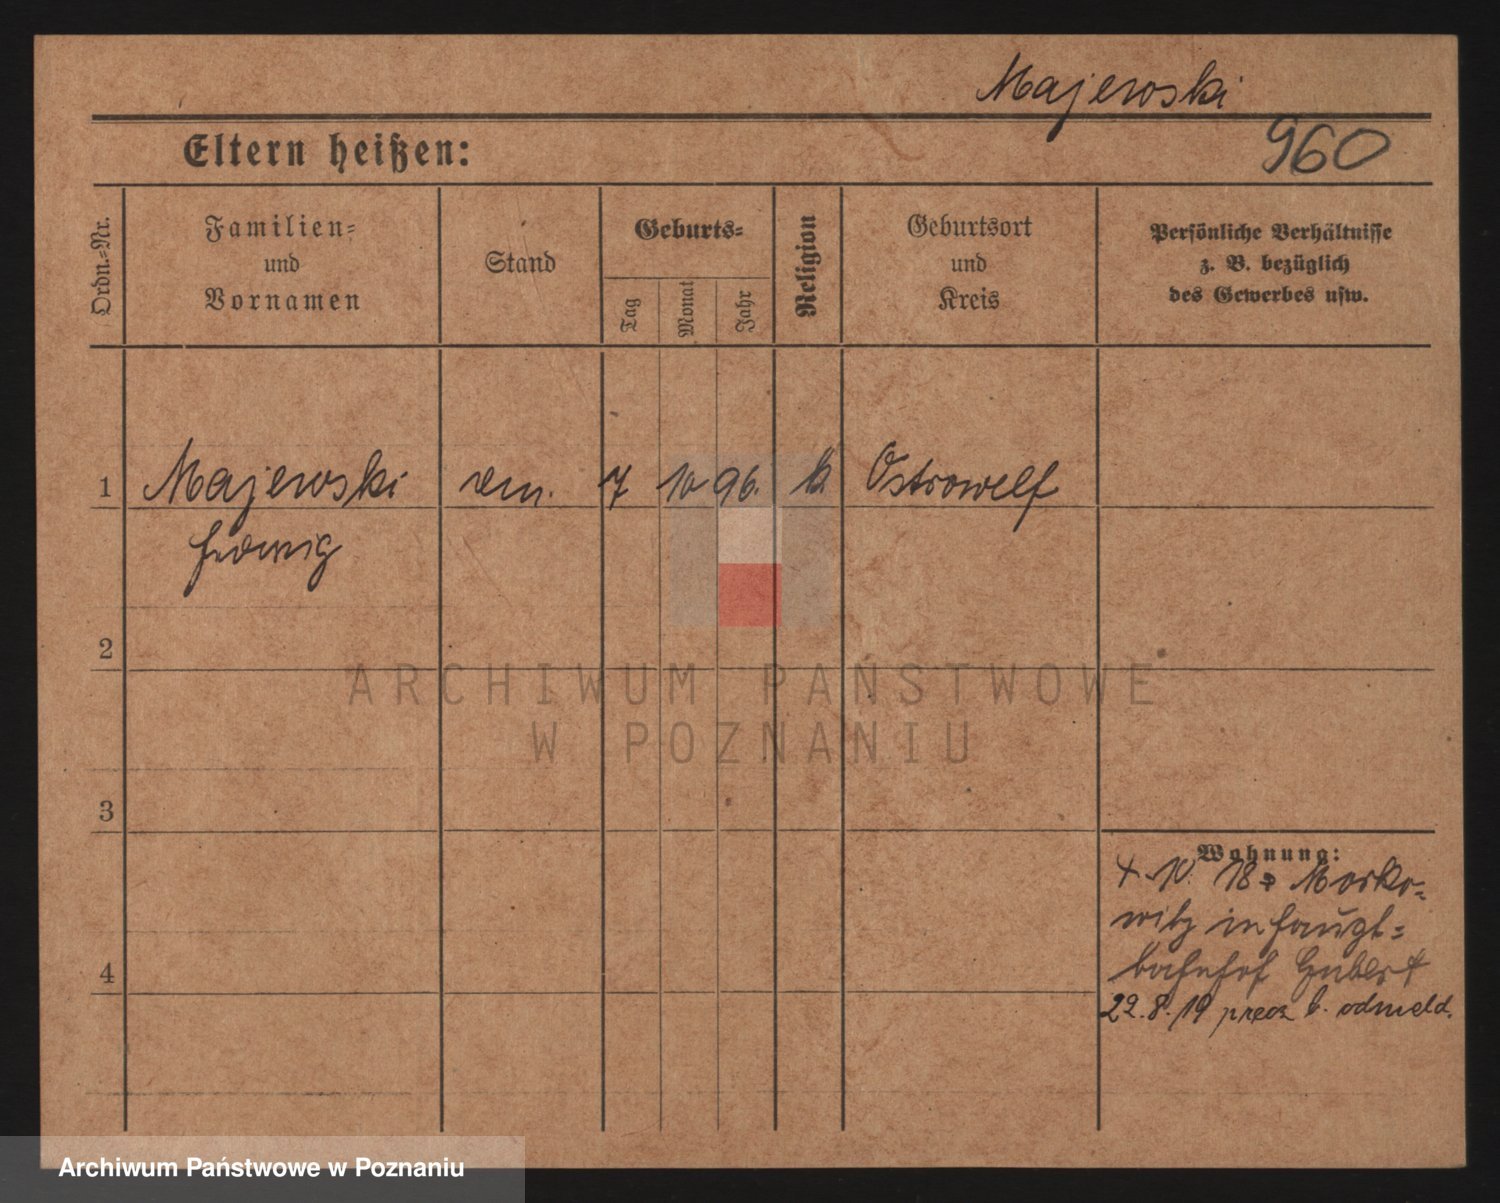 Majewski
960
Eltern heißen:
Ordn.-Nr.
Familien-
und
Vornamen
Stand
Geburts-
Tag
Monat
Jahr
Religion
Geburtsort
und
Kreis
Persönliche Verhältnisse
z. B. bezüglich
des Gewerbes usw.
1 Majewski 7 10 96. k Ostrowelf
Hedwig
2
ARCHIWUM PAŃSTWOWE
W POZNANIU
3
Wohnung:
10. 18
witz in Haupt=
bahnhof
4
22.8.19 precz b. odmeld.
Archiwum Państwowe w Poznaniu